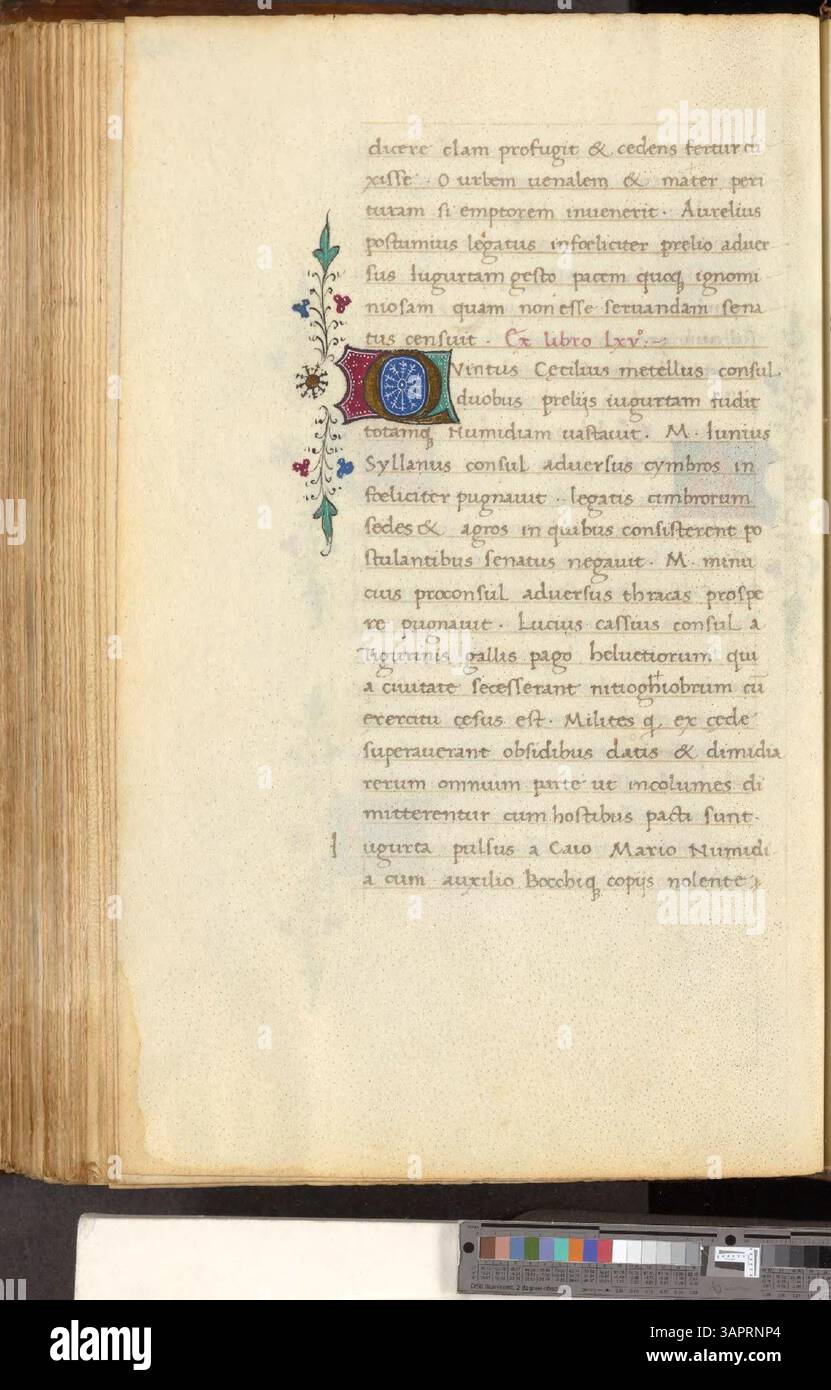 dicere clam profugit & cedens fertur di
xisse · O urbem uenalem & mater peri
turam si emptorem inuenerit · Aurelius
postumius legatus infoeliciter prelio aduer
sus Iugurtam gesto pacem quoqꝫ ignomi
niosam quam non esse seruandam sena
tus censuit · Ex libro lxvº:~
QVintus Cecilius metellus consul
duobus prelijs iugurtam fudit
totamqꝫ Numidiam uastauit · M · Iunius
Syllanus consul aduersus cymbros in
foeliciter pugnauit · legatis cimbrorum
sedes & agros in quibus consisterent po
stulantibus senatus negauit · M · minu
cius proconsul aduersus thracas prospe
re pugnauit · Lucius cassius consul a
Tigurinis gallis pago heluetiorum qui
a ciuitate secesserant nitioghiobrum cū
exercitu cesus est · Milites q, ex cede
superauerant obsidibus datis & dimidia
rerum omnium parte ut incolumes di
mitterentur cum hostibus pacti sunt ·
I ugurta pulsus a Caio Mario Numidi
a cum auxilio Bocchiqꝫ copijs nolente
alamy
Image ID: 3APRNP4
www.alamy.com